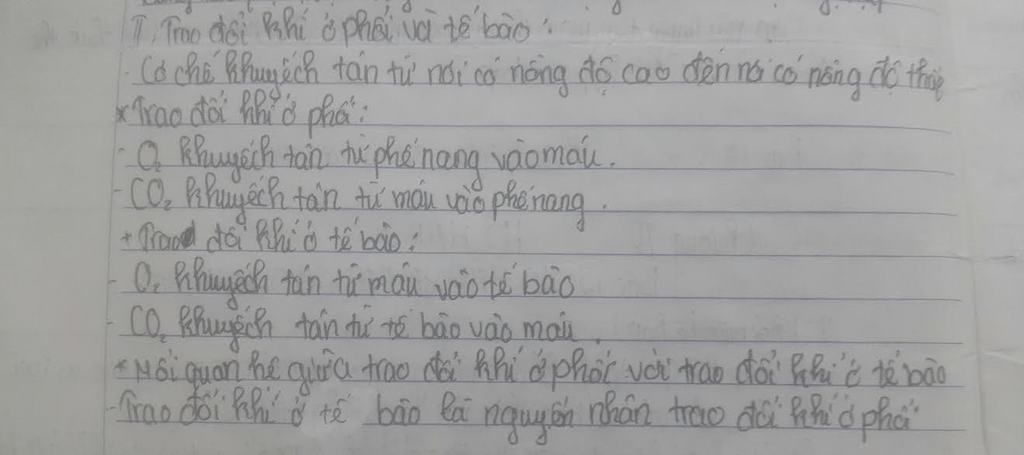 II, Trao đổi khí ở phổi và tế bào:
- Cơ chế khuyếch tán từ nơi có nồng độ cao đến nơi có nồng độ thấp
* Trao đổi khí ở phổi:
- O₂ khuyếch tán từ phế nang vào máu.
- CO₂ khuyếch tán từ máu vào phế nang.
+ Trao đổi khí ở tế bào:
- O₂ khuyếch tán từ máu vào tế bào
- CO₂ khuyếch tán từ tế bào vào máu.
* Mối quan hệ giữa trao đổi khí ở phổi với trao đổi khí ở tế bào
- Trao đổi khí ở tế bào là nguyên nhân trao đổi khí ở phổi